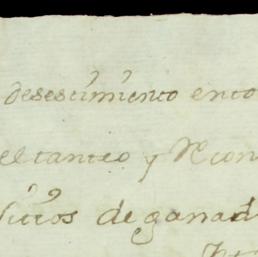 desescimiento ento
el tanteo y Recon
sitios de ganad